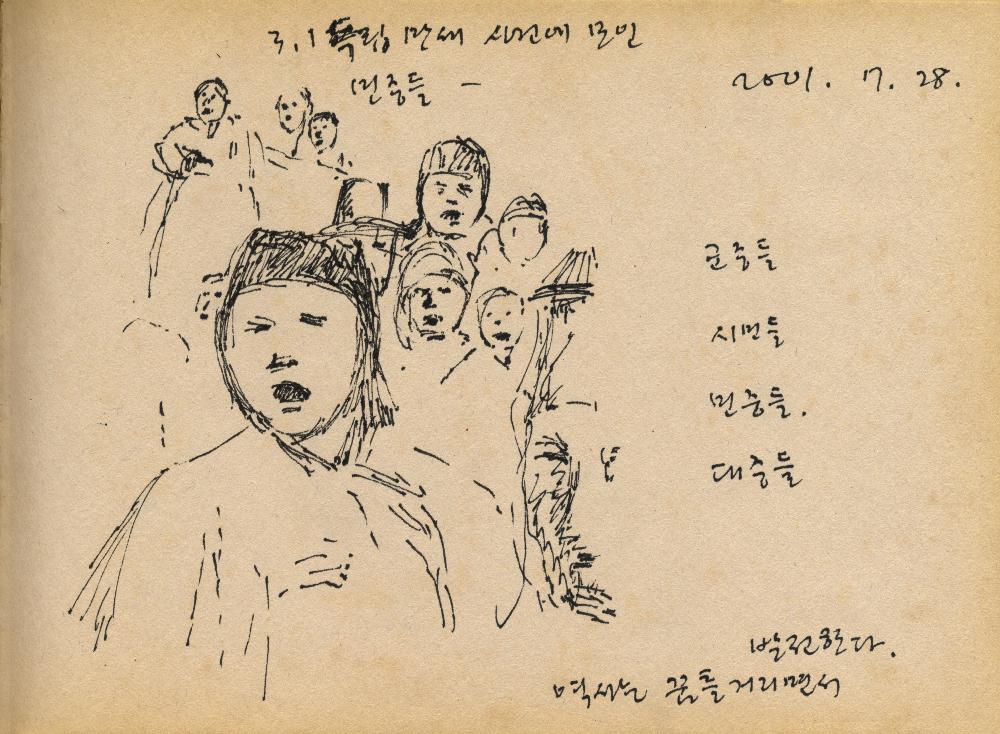 3.1 독립 만세 시건에 모인
민중들 -
2001. 7. 28.
군중들
시민들
민중들.
대중들
발전한다.
역사는 꿈틀거리면서